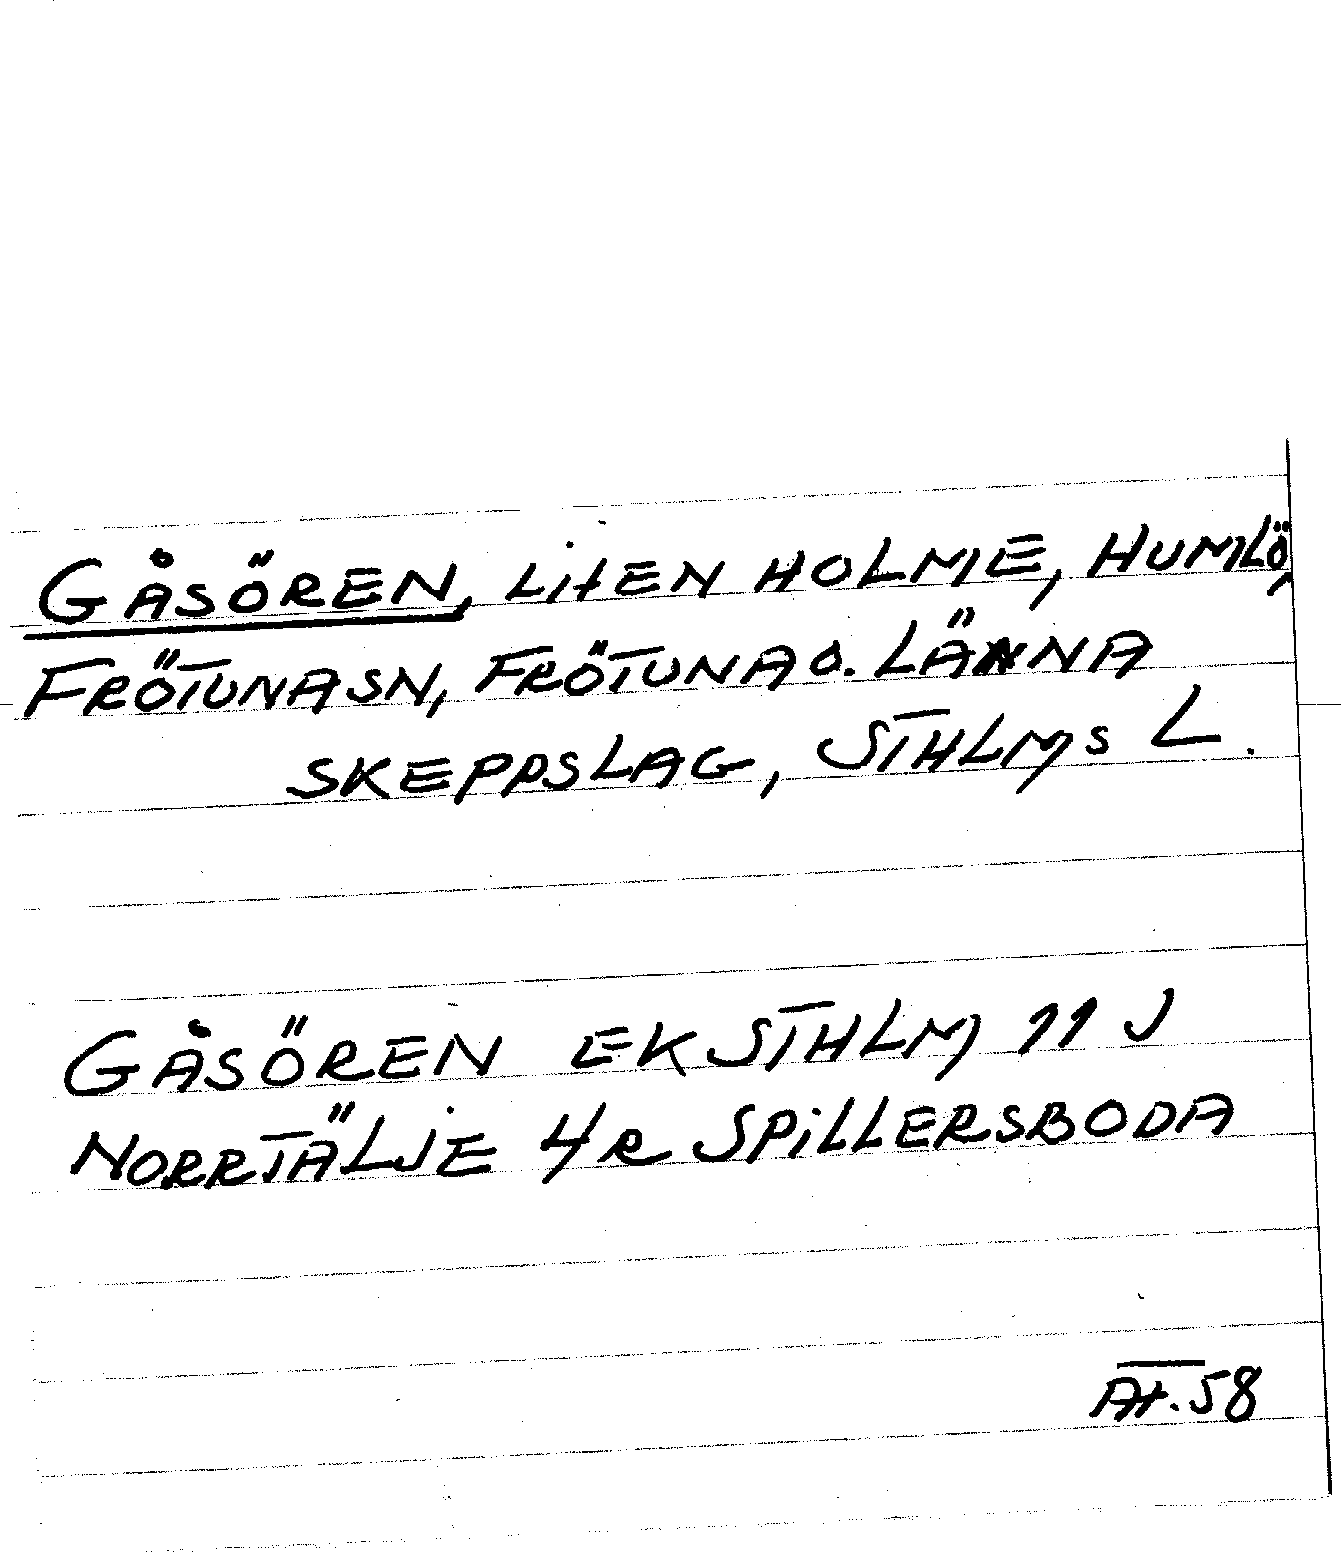 GÅSÖREN, LitEN HOLME, HUMLÖ,
FRÖTUNA SN, FRÖTUNA O. LÄNNA
SKEPPSLAG, STHLMS L.
GÅSÖREN EK STHLM 11 J
NORRTÄLJE 4/R SPiLLERSBODA
At. 58